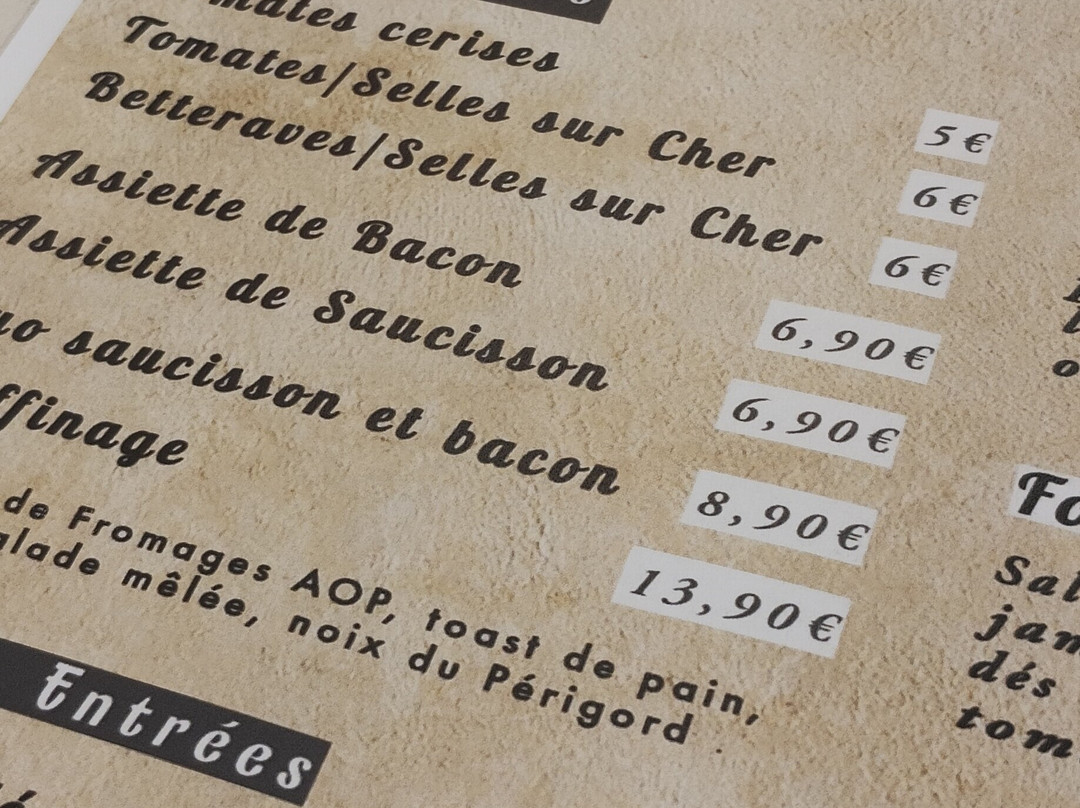 cerises 5€
Tomates/Selles sur Cher 6€
Betteraves/Selles sur Cher 6€
Assiette de Bacon 6,90€
Assiette de Saucisson 6,90€
saucisson et bacon 8,90€
ffinage 13,90€
de Fromages AOP, toast de pain,
alade mêlée, noix du Périgord
Entrées
Fo
Sal
jam
dés
tom